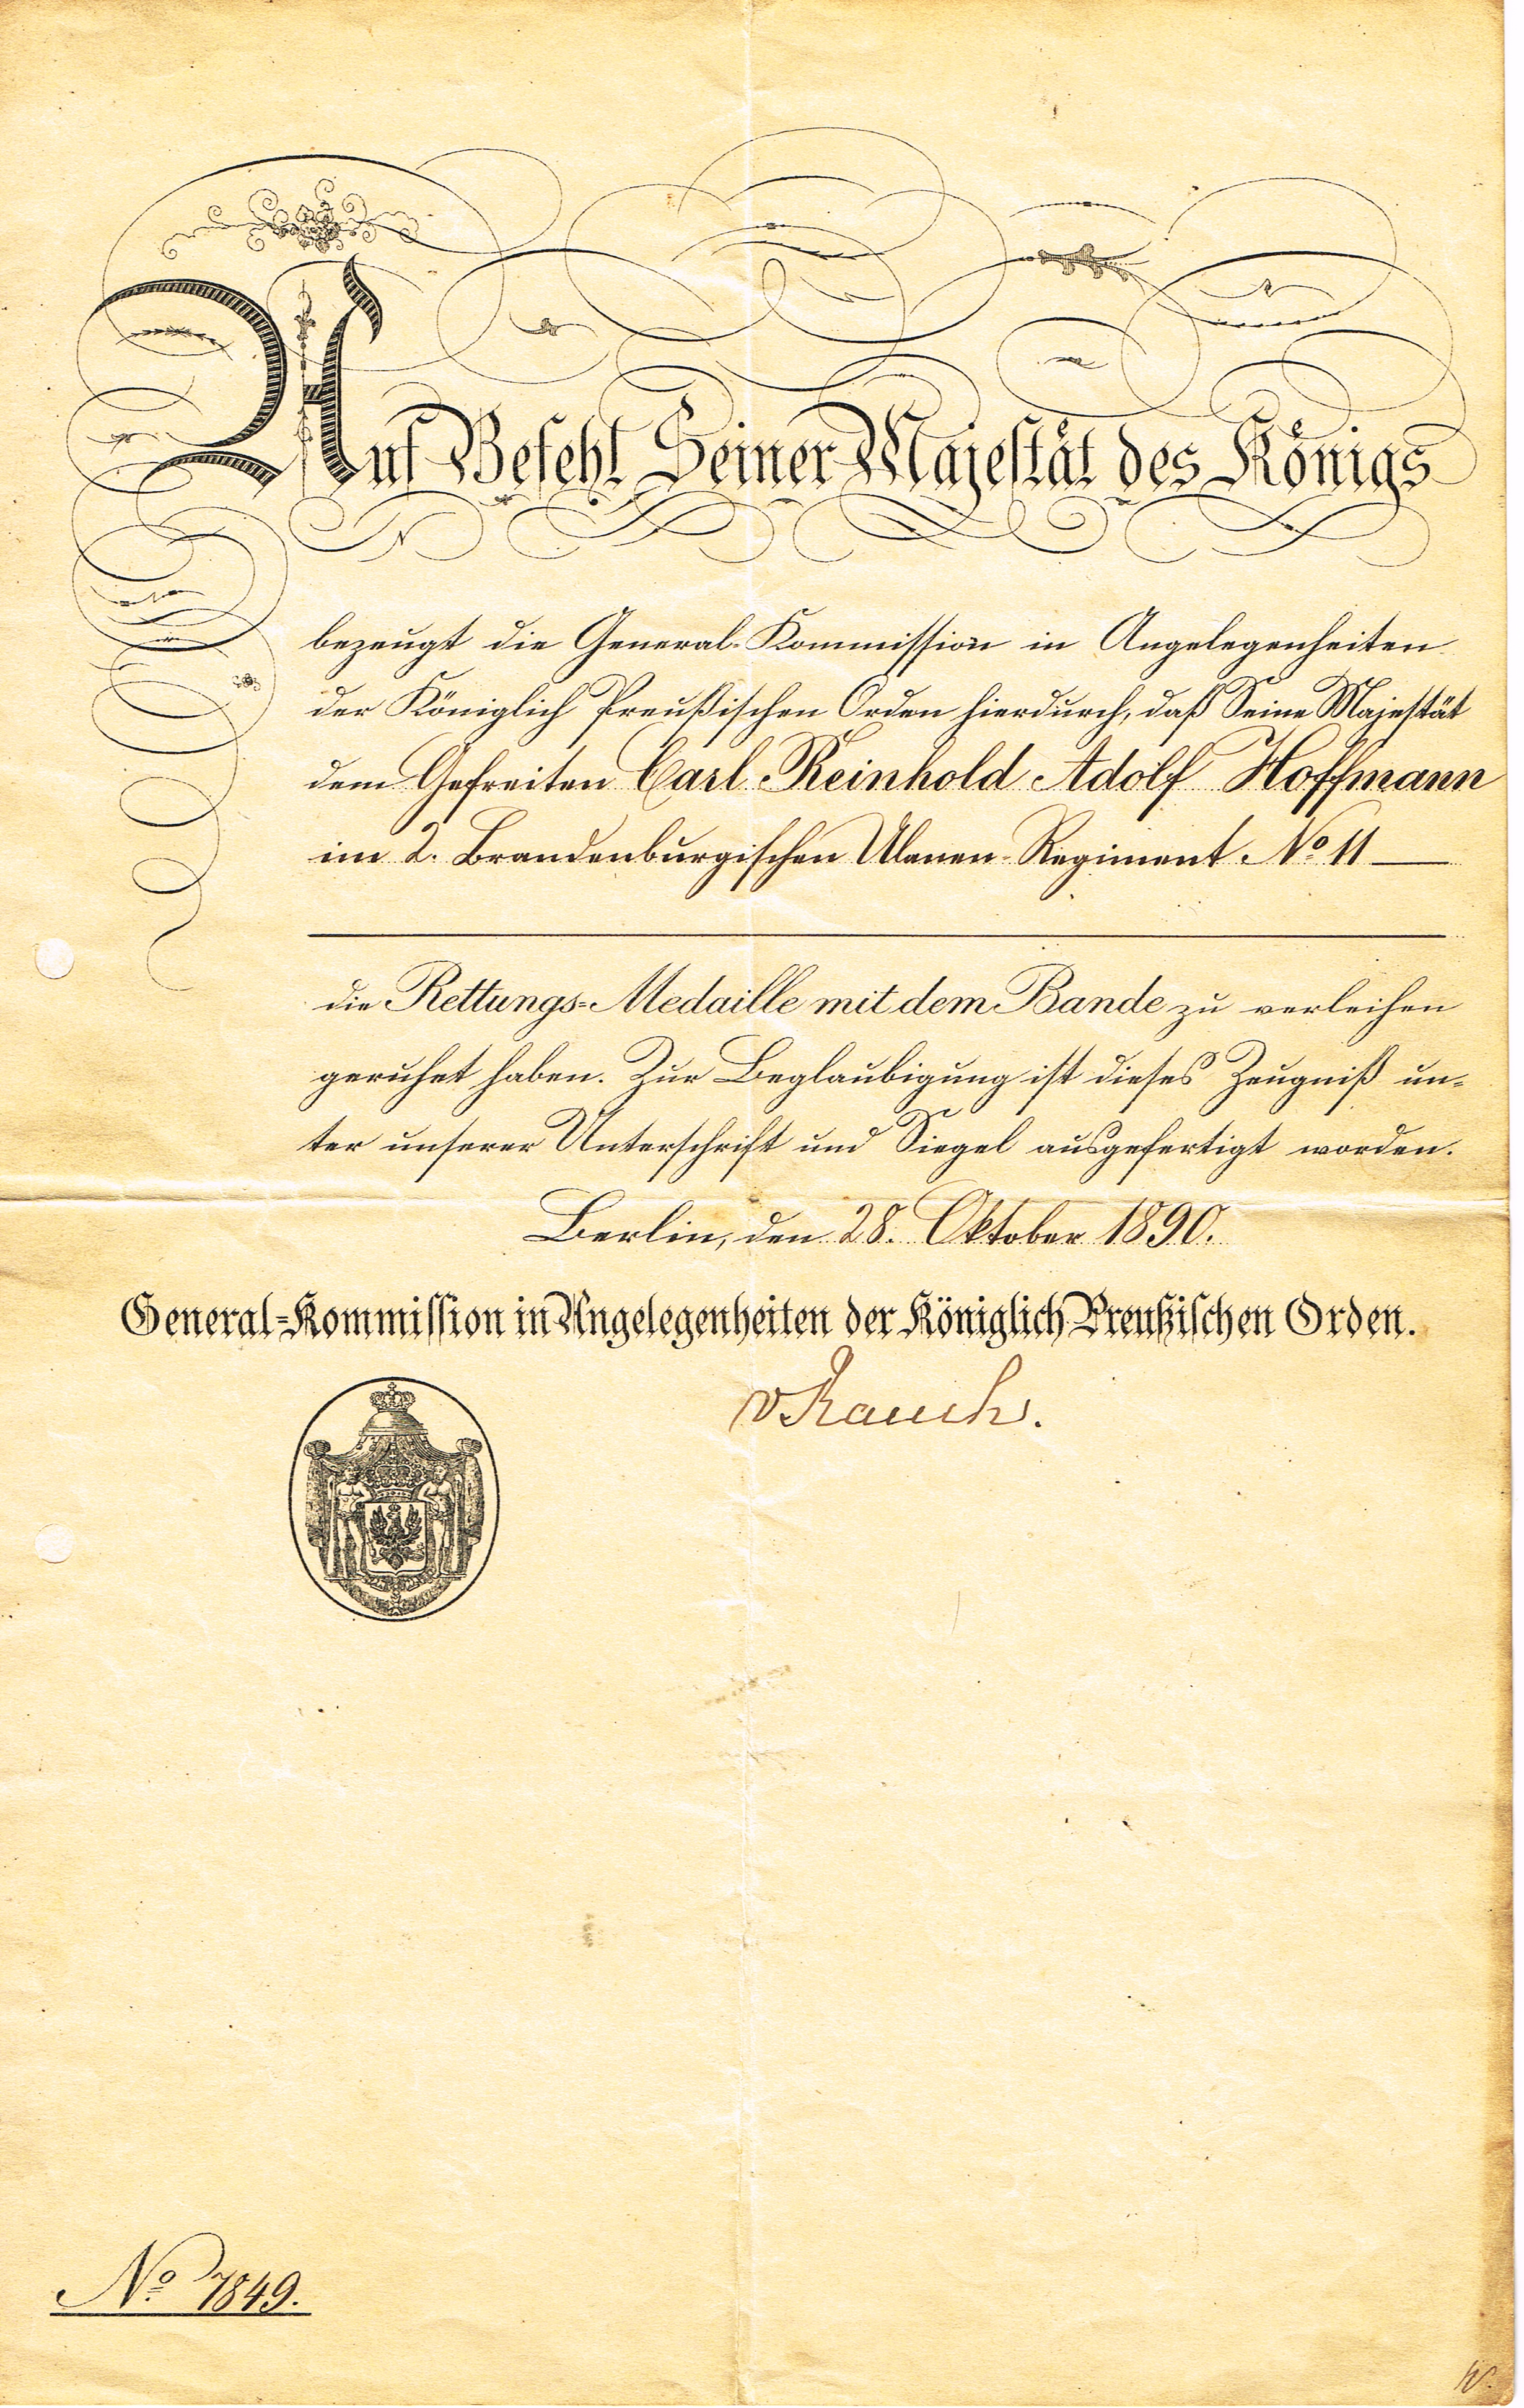 Auf Befehl Seiner Majestät des Königs
bezeugt die General-Kommission in Angelegenheiten
der Königlich Preußischen Orden hierdurch, daß Seine Majestät
dem Gefreiten Carl Reinhold Adolf Hoffmann
im 2. Brandenburgischen Ulanen-Regiment No 11
die Rettungs-Medaille mit dem Bande zu verleihen
geruhet haben. Zur Beglaubigung ist dieses Zeugniß un-
ter unserer Unterschrift und Siegel ausgefertigt worden.
Berlin, den 28. Oktober 1890.
General-Kommission in Angelegenheiten der Königlich Preußischen Orden.
v Rauch.
No 7849.